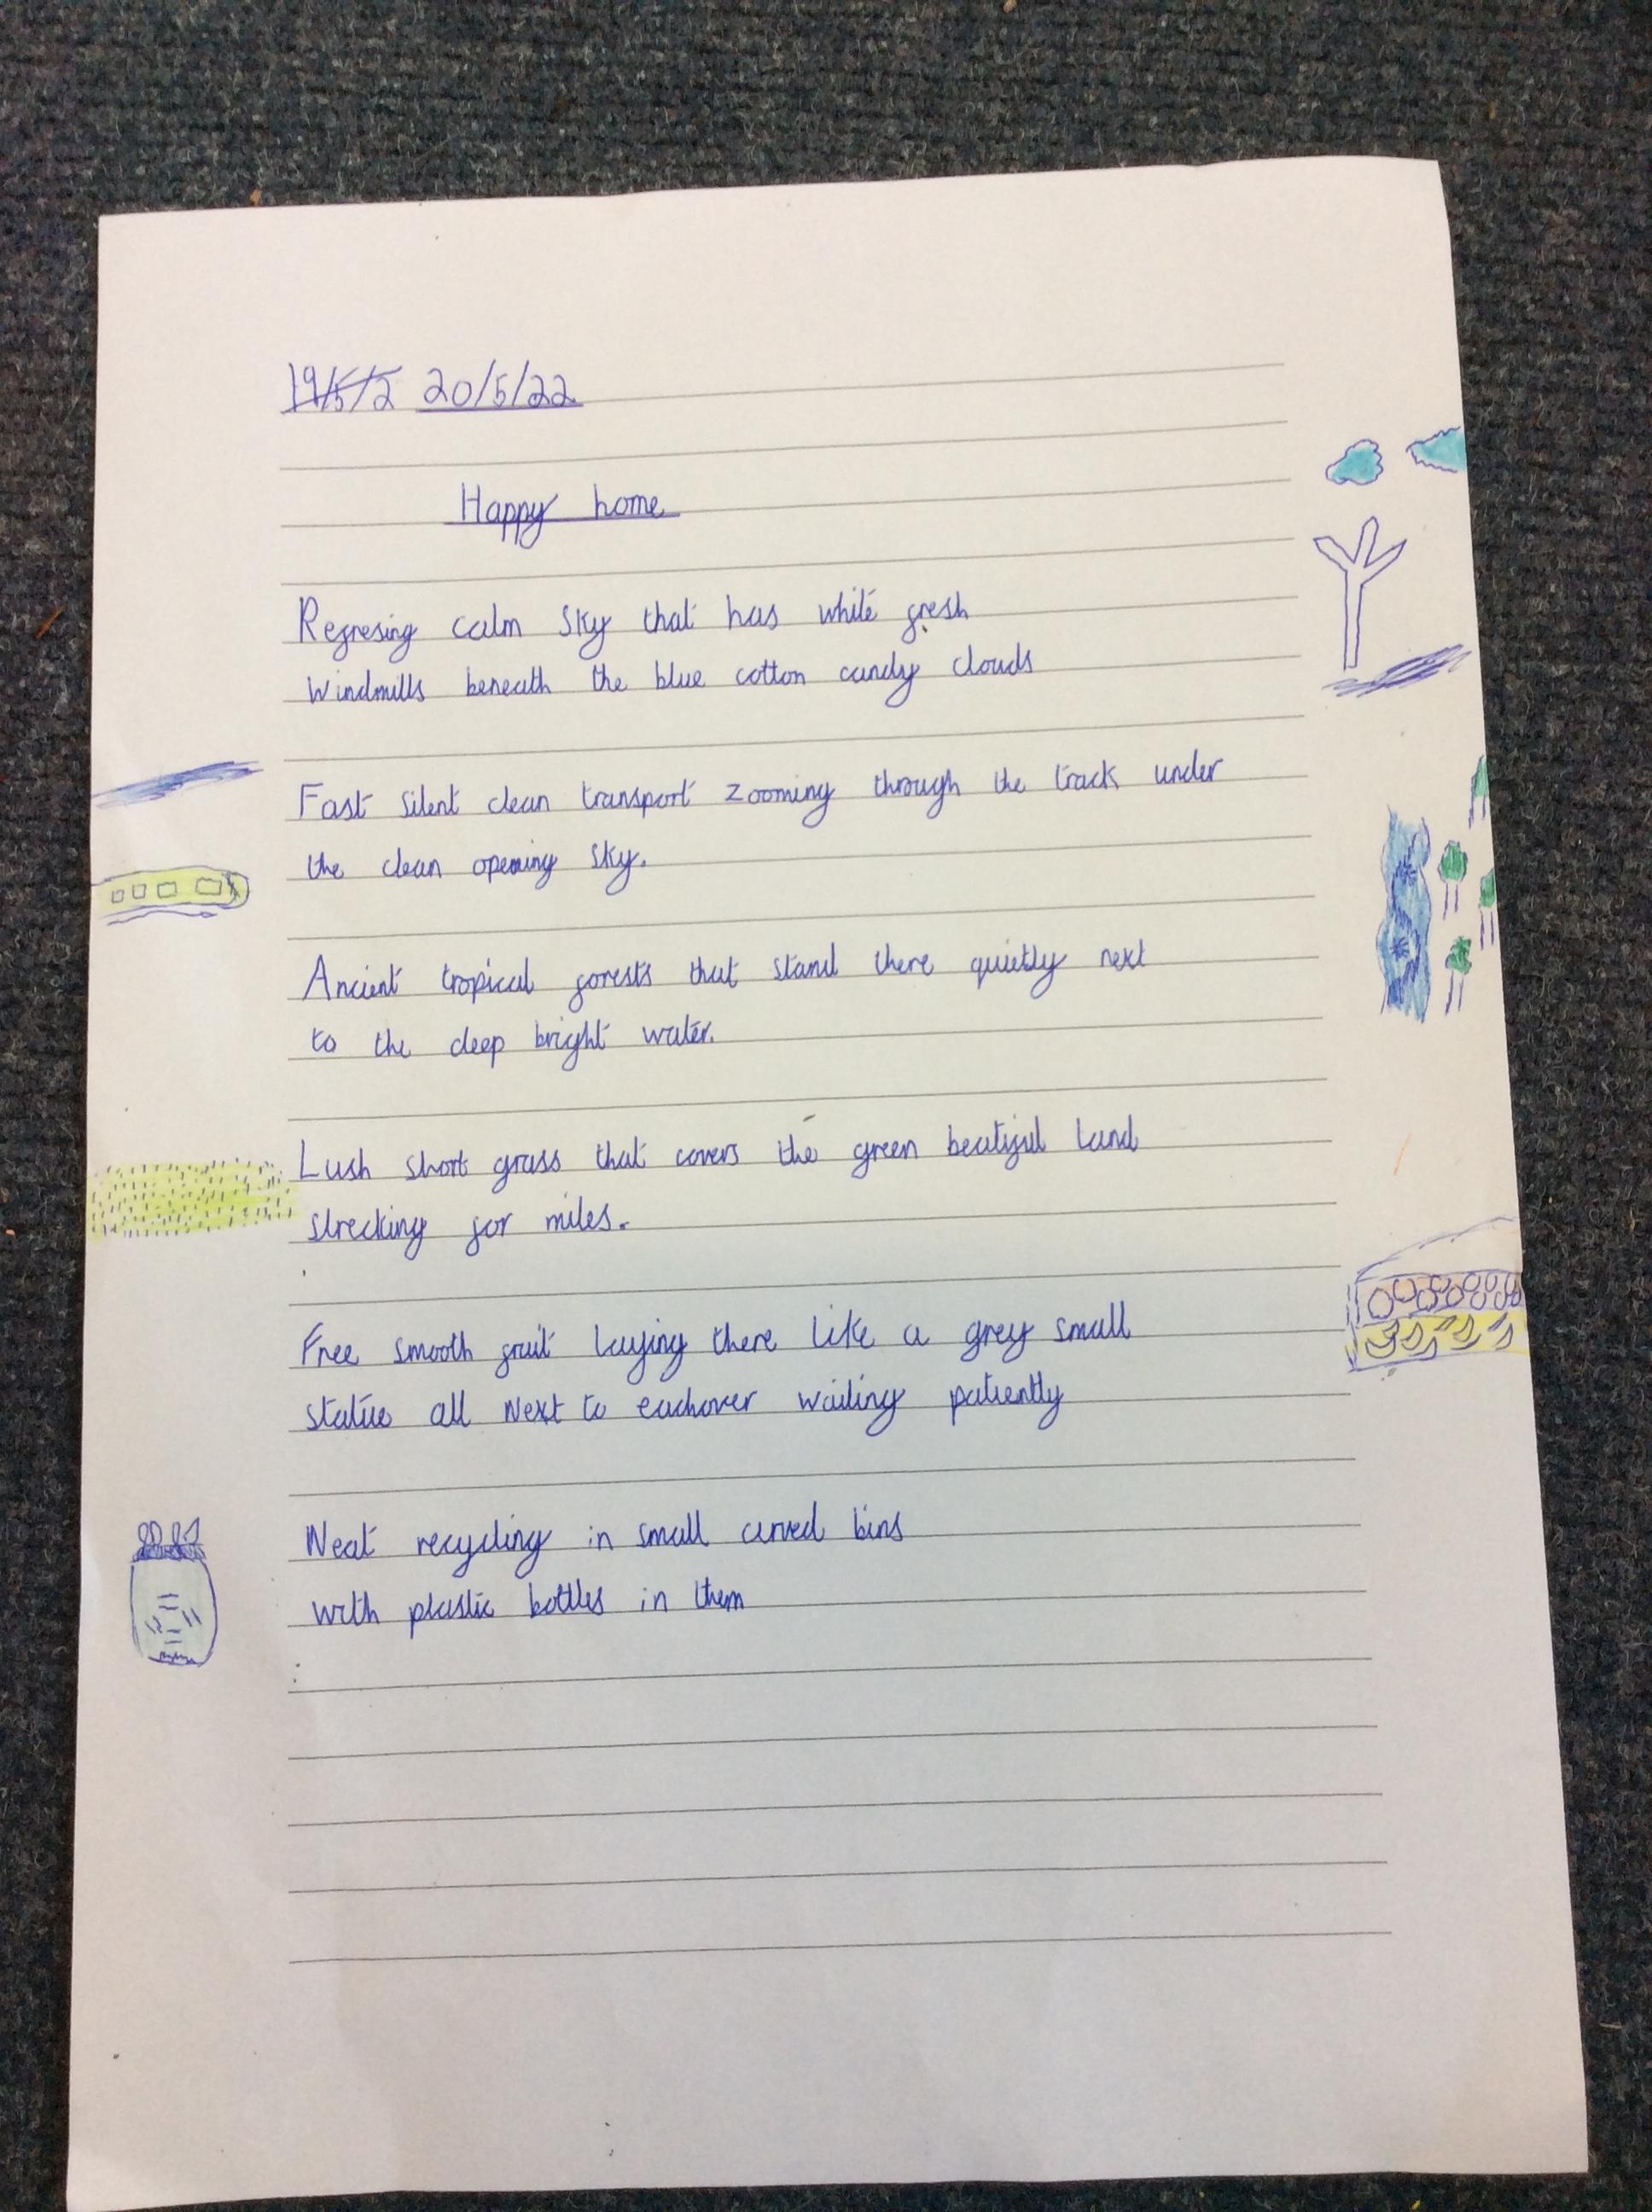 19/5/2 20/5/22
Happy home
Refresing calm sky that has white fresh
windmills beneath the blue cotton candy clouds
Fast silent clean transport zooming through the track under
the clean opening sky.
Ancient tropical forests that stand there quietly next
to the deep bright water.
Lush short grass that covers the green beatiful land
strecking for miles.
Free smooth fruit laying there like a grey small
statue all next to eachover waiting patiently
Neat recycling in small curved bins
with plastic bottles in them